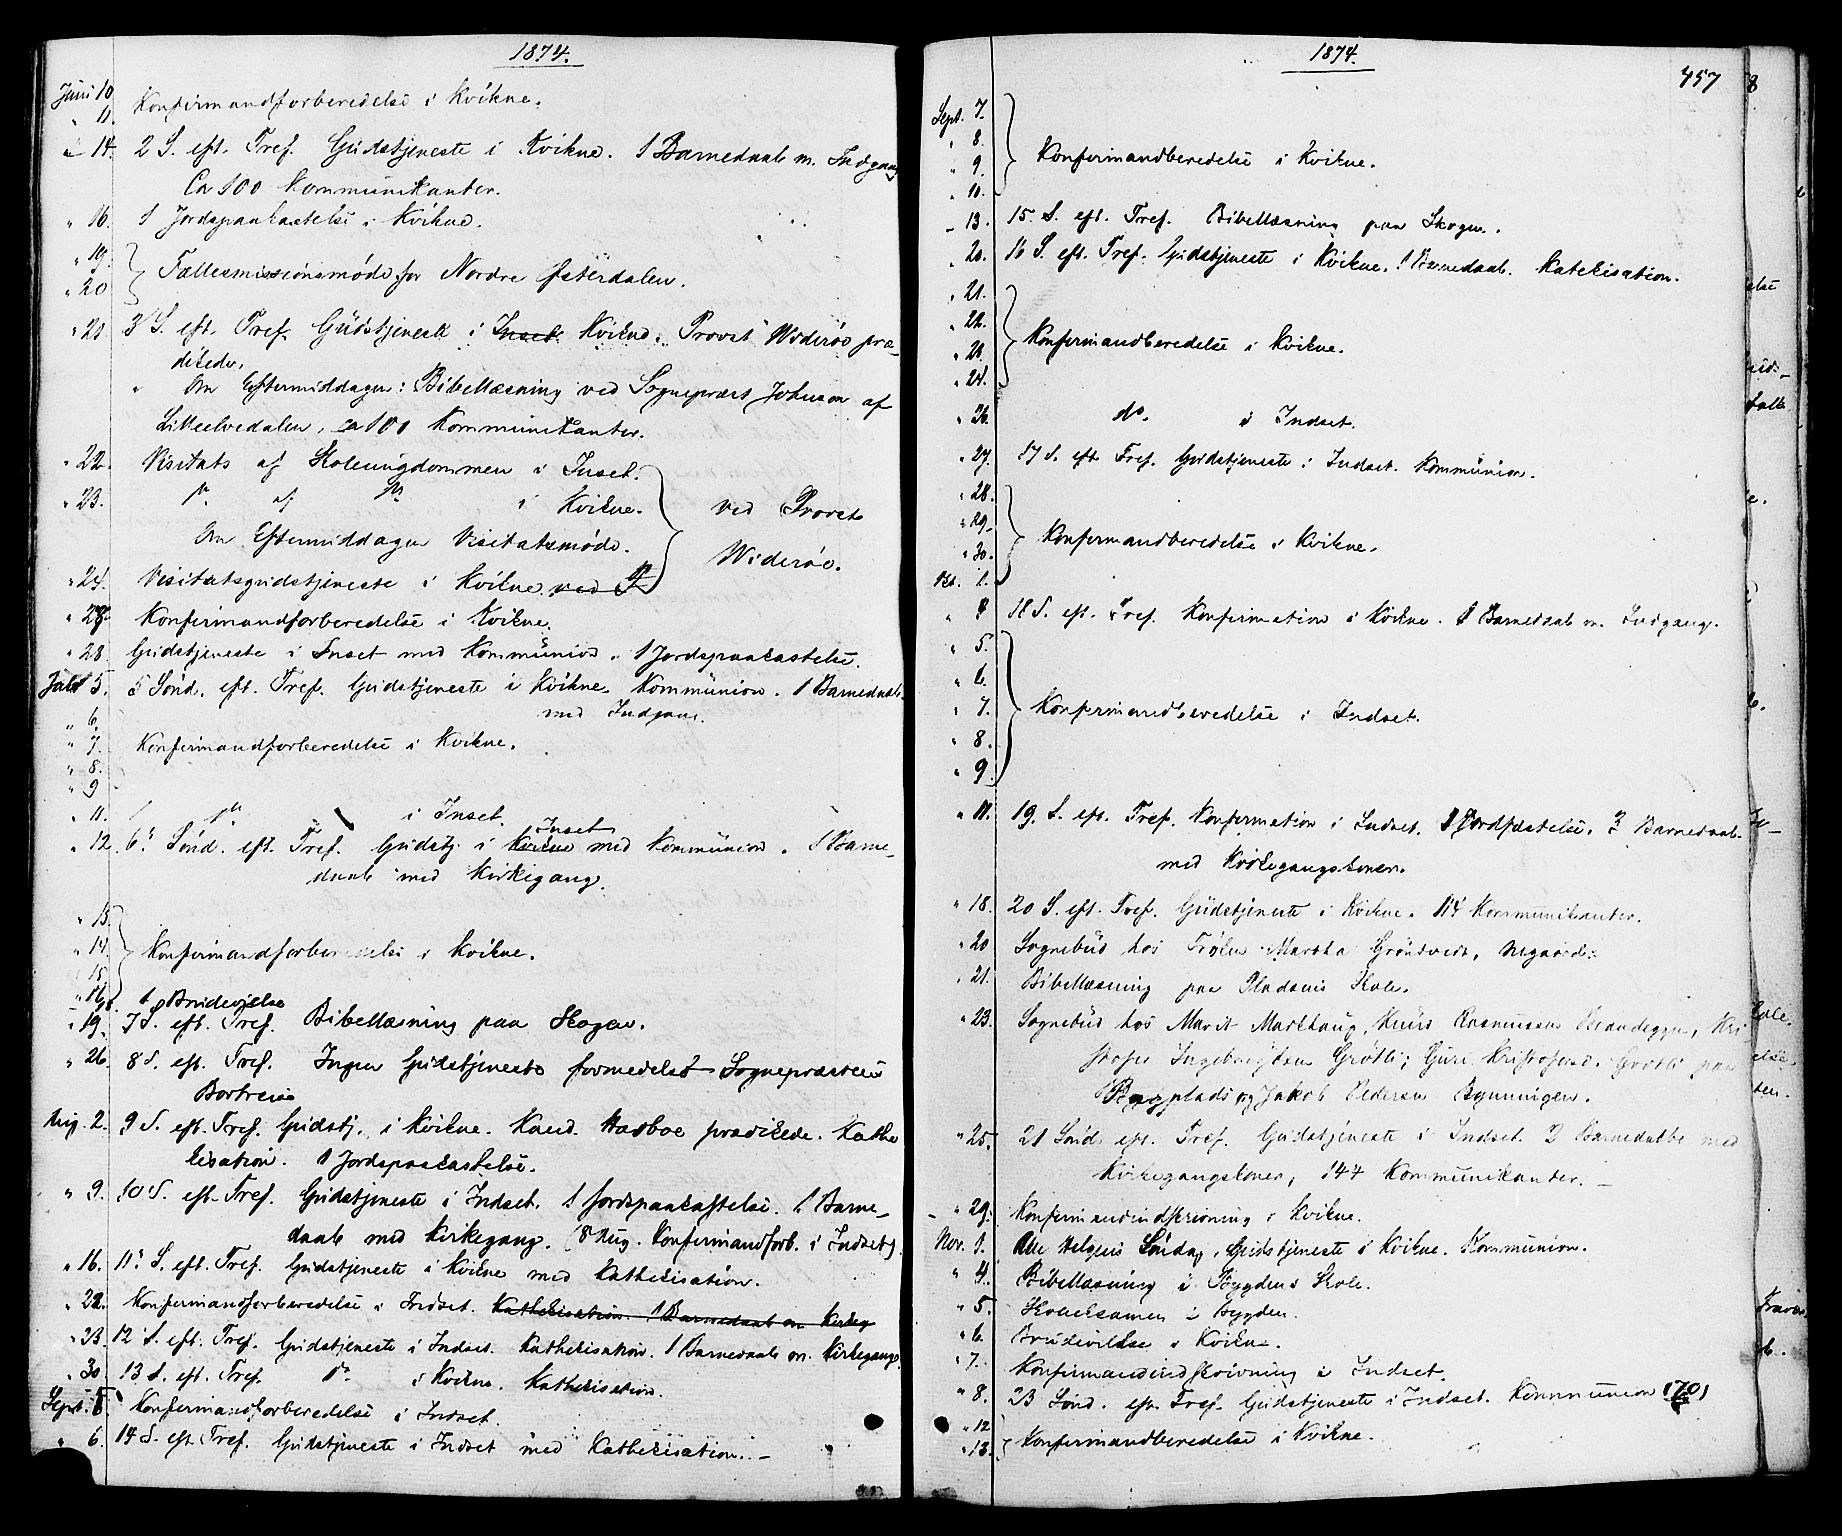 1874.
Juni 10. Konfirmandforberedelse i Kvikne.
" 11.
" 14. 2 S. eft. Tref. Gudstjeneste i Kvikne. 1 Barnedaab m. Indgang
Ca 100 Kommunikanter.
" 16. 1 Jordspaakastelse i Kvikne.
" 19. Fællesmissionsmøde for Nordre Østerdalen.
" 20
" 21 3 S. eft. Tref. Gudstjeneste i Inset. Kvikne. Provst Widerøe præ-
dikede.
" Om Eftermiddagen: Bibellæsning ved Sogneprest Johnson af
Lilleelvedalen, ca 100 Kommunikanter.
" 22. Visitats af Skoleungdommen i Inset.
" 23. do af do i Kvikne. ved Provst
Om Eftermiddagen Visitatsmøde. Widerøe.
" 24. Visitatsgudstjeneste i Kvikne ved P
" 27. Konfirmandforberedelse i Kvikne.
" 28 Gudstjeneste i Inset med Kommunion. 1 Jordspaakastelse.
Juli 5. 5 Sönd. eft. Tref. Gudstjeneste i Kvikne. Kommunion. 1 Barnedaab
med Indgang.
" 6.
" 7. Konfirmandforberedelse i Kvikne.
" 8.
" 9
" 11. do i Inset.
Inset
" 12. 6 Sönd. eft. Tref. Gudstj. i Kvikne med Kommunion. 1 Barne-
daab med Kirkegang.
" 13.
" 14. Konfirmandforberedelse i Kvikne.
" 15.
" 16. 1 Brudevielse
" 19. 7 S. eft. Tref. Bibellæsning paa Skogen.
" 26. 8 S. eft. Tref. Ingen Gudstjeneste formedelst Sogneprestens
Bortreise
Aug. 2. 9 S. eft. Tref. Gudstj. i Kvikne. Kand. Aasboe prædikede. Kathe
kisation. 1 Jordspaakastelse.
" 9. 10 S. eft. Tref. Gudstjeneste i Indset. 1 Jordspaakastelse. 1 Barne-
daab med Kirkegang. (8 Aug. Konfirmandforb. i Indset).
" 16. 11 S. eft. Tref. Gudstjeneste i Kvikne med Kathekisation.
" 22. Konfirmandforberedelse i Indset. Kathekisation. 1 Barnedaab m Kirkeg
" 23. 12 S. eft. Tref. Gudstjeneste i Indset. Kathekisation. 1 Barnedaab m. Kirkegang.
" 30. 13 S. eft. Tref. do i Kvikne. Kathekisation.
Sept. 5. Konfirmandforberedelse i Indset.
" 6. 14 S. eft Tref. Gudstjeneste i Indset med Kathekisation. -
1874.
457
Sept. 7.
" 8. Konfirmandberedelse i Kvikne.
" 9.
" 10.
" 13. 15. S. eft. Tref. Bibellæsning paa Skogen.
" 20. 16 S. eft. Tref. Gudstjeneste i Kvikne. 1 Barnedaab. Katekisation.
" 21.
" 22. Konfirmandberedelse i Kvikne.
" 23.
" 24.
" 26. do. i Indset.
" 27. 17 S. eft Tref. Gudstjeneste i Indset. Kommunion.
" 28.
" 29. Konfirmandberedelse i Kvikne.
" 30.
Okt. 1.
" 4 18 S. eft. Tref. Konfirmation i Kvikne. 1 Barnedaab m. Indgang.
" 5.
" 6.
" 7. Konfirmandberedelse i Indset.
" 8.
" 9.
" 11. 19. S. eft. Tref. Konfirmation i Indset. 1 Jordfæstelse. 3 Barnedaab
med Kirkegangskoner.
" 18. 20 S. eft. Tref. Gudstjeneste i Kvikne. 114 Kommunikanter.
" 20 Sognebud hos Frøken Martha Gröntvedt, Negaard.
" 21. Bibellæsning paa Pladsens Skole.
" 23. Sognebud hos Marit Markhaug, Knud Rasmussen Brandeggen, Kri
stofer Ingebrigtsen Grötli; Guri Kristofersd. Grötli paa
plads og Jakob Pedersen Bunningen.
" 25. 21 Sönd. eft. Tref. Gudstjeneste i Indset. 2 Barnedaabe med
Kirkegangskoner, 144 Kommunikanter. -
" 29. Konfirmandindskrivning i Kvikne.
Nov. 1. Alle Helgens Söndag. Gudstjeneste i Kvikne. Kommunion.
" 4. Bibellæsning i Bygdens Skole.
" 5. Skoleksamen i Bygden.
" 6. Brudevielse i Kvikne.
" 7. Konfirmandindskrivning i Indset.
" 8. 23 Sönd. eft. Tref. Gudstjeneste i Indset. Kommunion (70)
" 12 Konfirmandberedelse i Kvikne.
" 13.